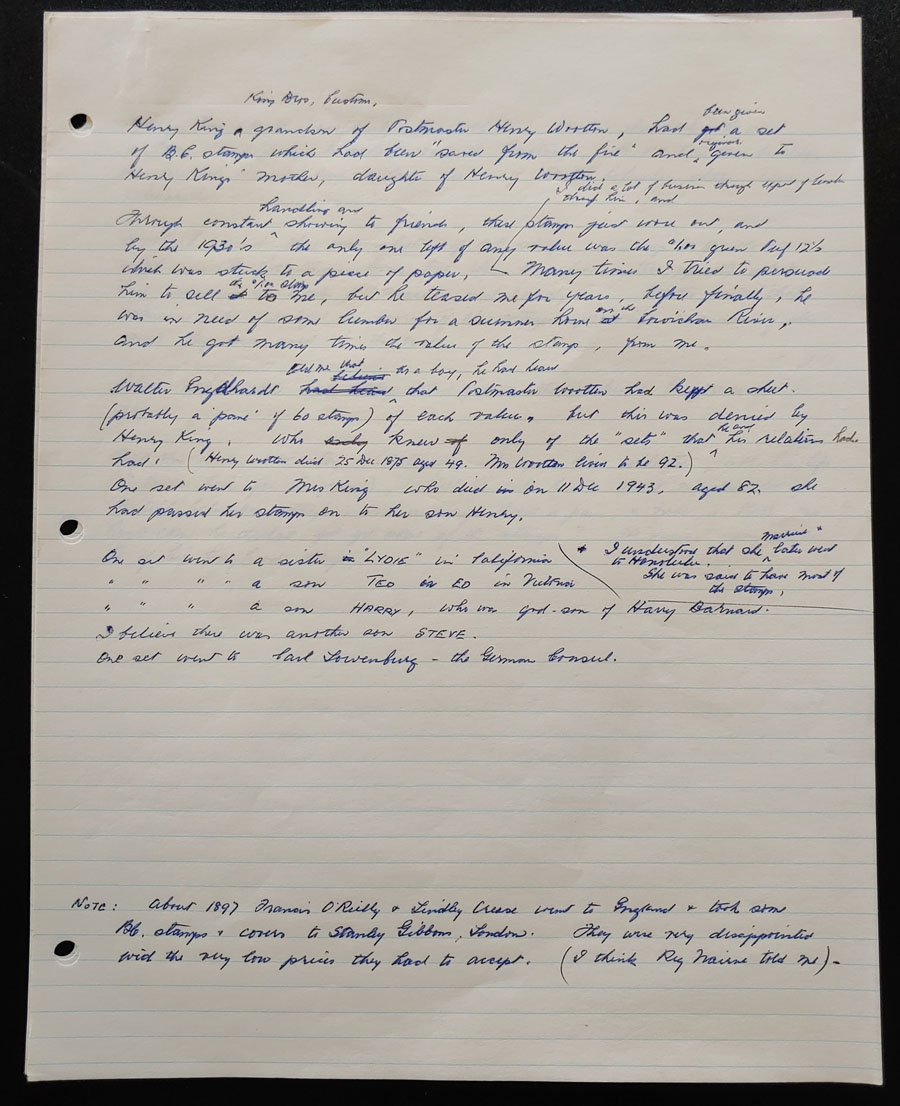 King Bros, Custom,
been given
Henry King a grandson of Postmaster Henry Wootton, had got a set
of B.C. stamps which had been "saved from the fire" and given to
Henry Kings' mother, daughter of Henry Wootton.
I did a lot of business through
through him, and
handling and
Through constant showing to friends, these stamps just wore out, and
by the 1930's the only one left of any value was the Perf 12½
which was stuck to a piece of paper, Many times I tried to persuade
the stamp
him to sell it to me, but he teased me for years, before finally, he
on the
was in need of some lumber for a summer home at Cowichan River,
and he got many times the value of the stamp, from me.
told me that as a boy, he had heard
Walter Englehardt had heard that Postmaster Wootton had kept a sheet.
(probably a 'pane' of 60 stamps) of each value, but this was denied by
he and
Henry King, who only knew of only of the "sets" that his relations had
had. (Henry Wootton died 25 Dec 1875 aged 49. Mrs Wootton lived to be 92.)
One set went to Mrs King who died in on 11 Dec 1943, aged 82 she
had passed her stamps on to her son Henry.
One set went to a sister in "LYDIE" in California
married &
* I understood that she later went
to Honolulu.
She was said to have most of
the stamps,
" " " " a son TED or ED in Victoria
" " " a son HARRY, who was god-son of Harry Barnard.
I believe there was another son STEVE.
One set went to Carl Lowenburg - the German Consul.
NOTE: About 1897 Francis O'Reilly & Lindley Crease went to England & took some
BC. stamps & covers to Stanley Gibbons, London. They were very disappointed
with the very low prices they had to accept. (I think Reg Nairne told me) -